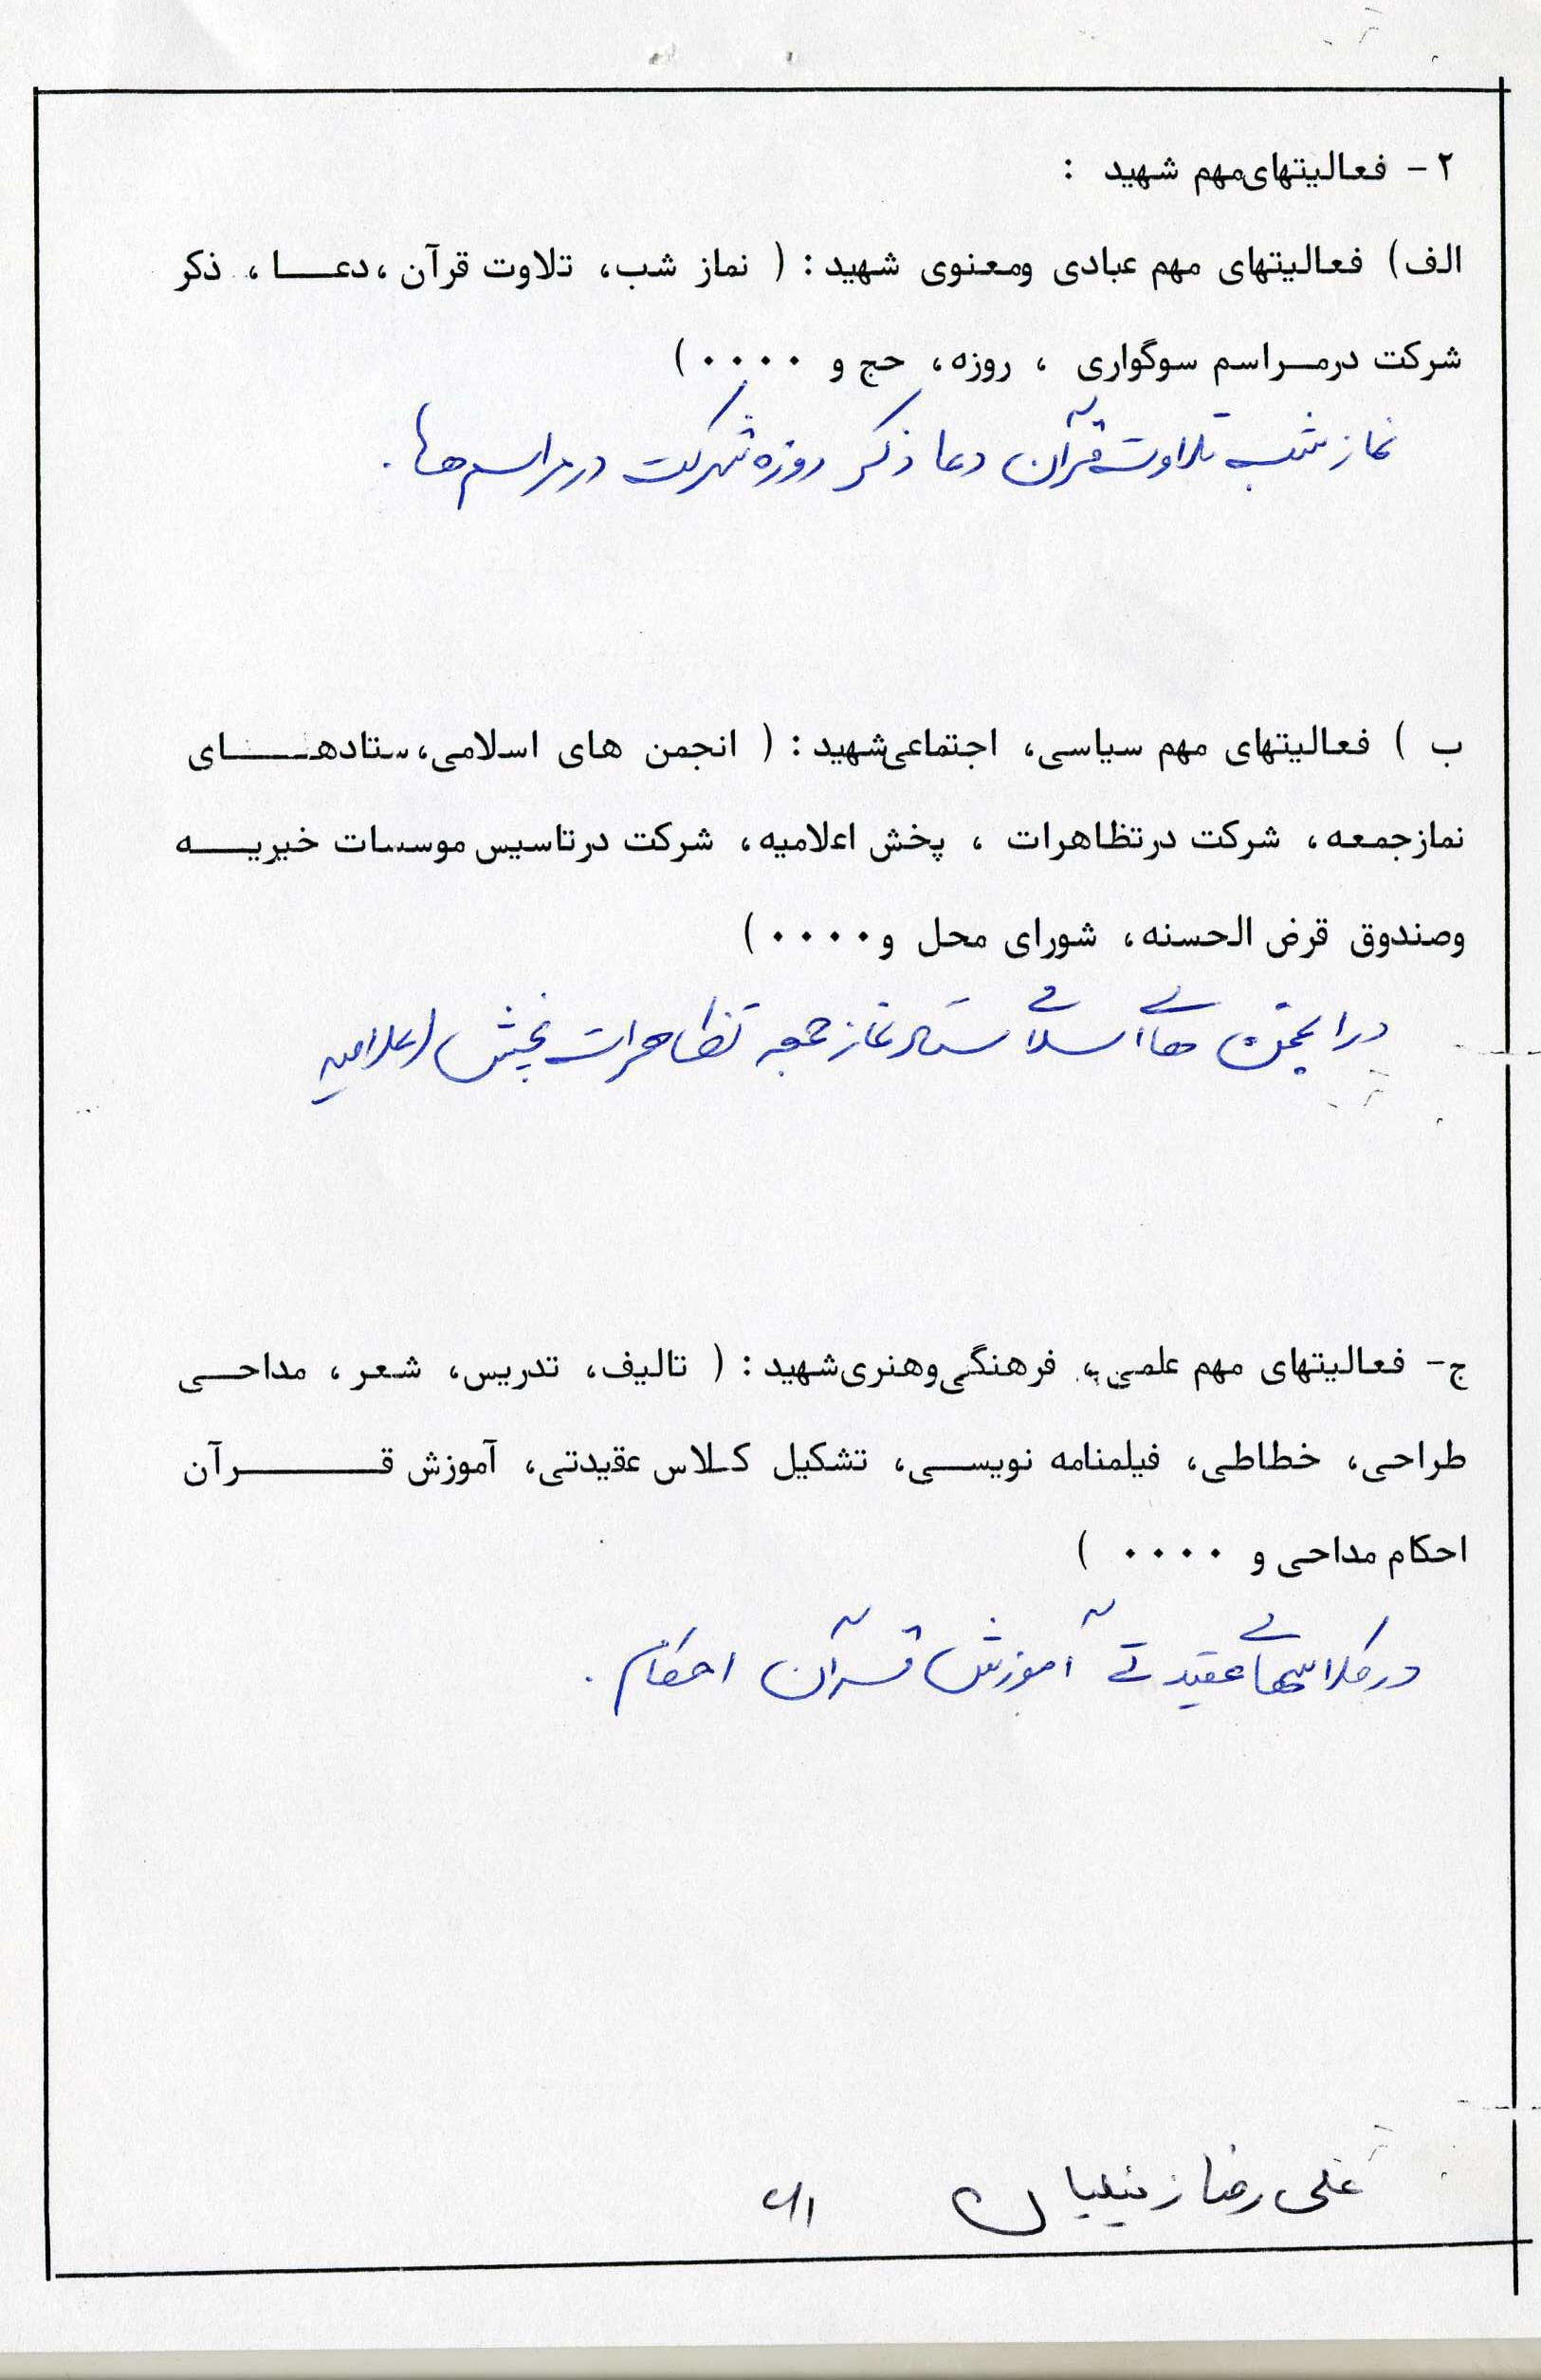 ۲ - فعالیتهای مهم شهید :
الف) فعالیتهای مهم عبادی ومعنوی شهید : ( نماز شب، تلاوت قرآن ،دعا ، ذکر
شرکت درمراسم سوگواری ، روزه، حج و ۰۰۰۰)
نماز شب تلاوت قرآن دعا ذکر روزه شرکت در مراسم ها .
ب ) فعالیتهای مهم سیاسی، اجتماعی شهید : ( انجمن های اسلامی، ستادهای
نمازجمعه ، شرکت درتظاهرات ، پخش اعلامیه ، شرکت درتاسیس موسسات خیریه
وصندوق قرض الحسنه، شورای محل و۰۰۰۰)
در انجمن های اسلامی ستاد نماز جمعه تظاهرات پخش اعلامیه
ج- فعالیتهای مهم علمی ، فرهنگی وهنری شهید : ( تالیف، تدریس، شعر ، مداحی
طراحی، خطاطی، فیلمنامه نویسی، تشکیل کلاس عقیدتی، آموزش قرآن
احکام مداحی و ۰۰۰۰ )
در کلاسهای عقیدتی آموزش قرآن احکام .
علی رضا زینلیان